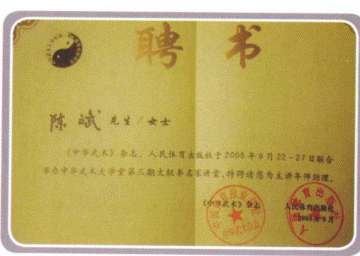 聘书
陈斌 先生/女士
《中华武术》杂志、人民体育出版社于2008年9月22-27日联合
举办中华武术大学堂第三期太极拳名家讲堂，特聘请您为主讲导师助理。
《中华武术》杂志 人民体育出版社
2008年9月